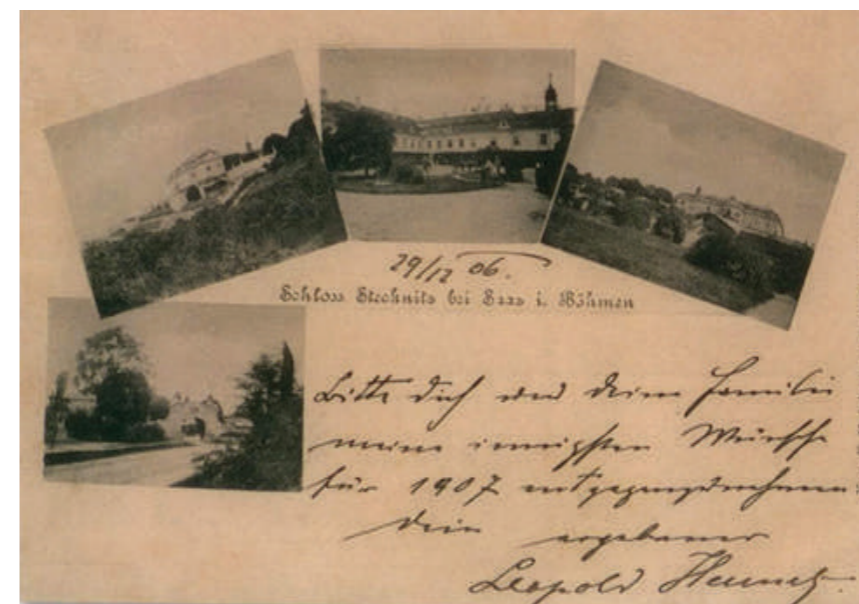 29/12 06.
Schloss Stechnitz bei Saaz i. Böhmen
Bitte dich und deine Familie
meine innigsten Wünsche
für 1907 entgegenzunehmen
Dein ergebener
Leopold